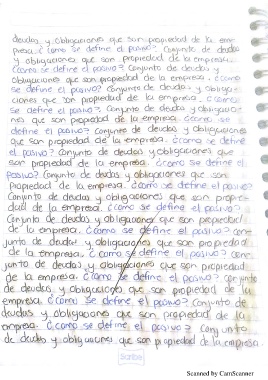 deudas y obligaciones que son propiedad de la em-
presa. ¿como se define el pasivo? Conjunto de deudas
y obligaciones que son propiedad de la empresa.
¿como se define el pasivo? Conjunto de deudas y
obligaciones que son propiedad de la empresa. ¿como
se define el pasivo? Conjunto de deudas y obliga-
ciones que son propiedad de la empresa. ¿como
se define el pasivo? Conjunto de deudas y obligacio-
nes que son propiedad de la empresa. ¿como se
define el pasivo? Conjunto de deudas y obligaciones
que son propiedad de la empresa. ¿como se define
el pasivo? Conjunto de deudas y obligaciones que
son propiedad de la empresa. ¿como se define el
pasivo? Conjunto de deudas y obligaciones que son
propiedad de la empresa. ¿como se define el pasivo?
Conjunto de deudas y obligaciones que son propie-
dad de la empresa. ¿como se define el pasivo?
Conjunto de deudas y obligaciones que son propiedad
de la empresa. ¿como se define el pasivo? con-
junto de deudas y obligaciones que son propiedad
de la empresa. ¿como se define el pasivo? con-
junto de deudas y obligaciones que son propiedad
de la empresa. ¿como se define el pasivo? Conjunto
de deudas y obligaciones que son propiedad de la
empresa. ¿como se define el pasivo? Conjunto de
deudas y obligaciones que son propiedad de la
empresa. ¿como se define el pasivo? Conjunto
de deudas y obligaciones que son propiedad de la empresa.
Scribe
Scanned by CamScanner